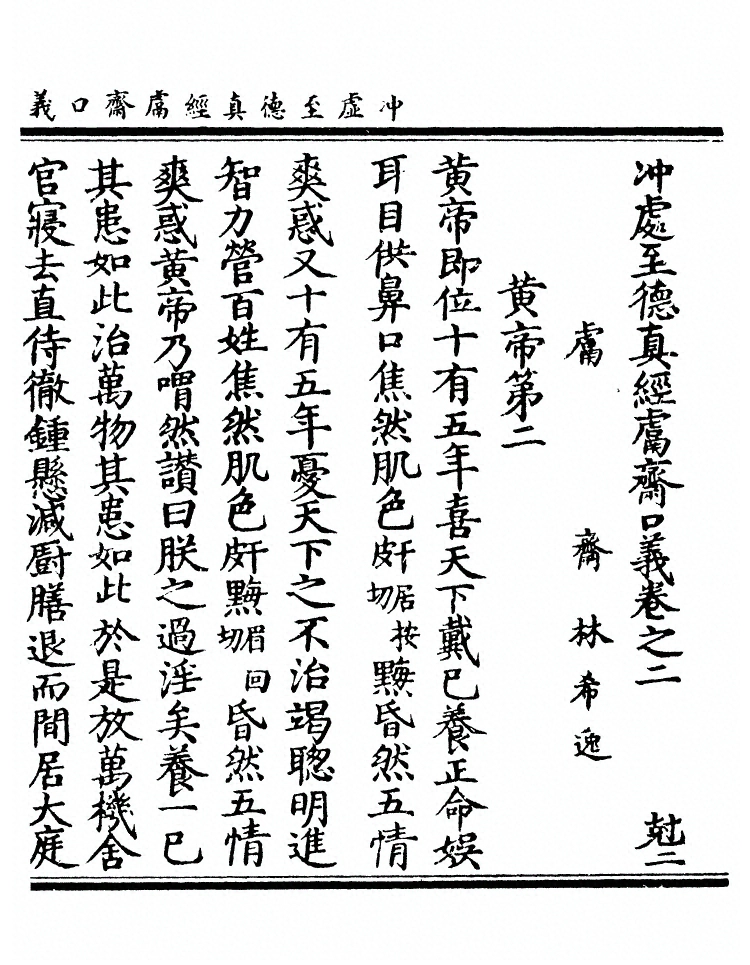 冲虛至德真經鬳齋口義
冲虛至德真經鬳齋口義卷之二 尅二
鬳齋林希逸
黃帝第二
黃帝即位十有五年喜天下戴己養正命娛
耳目供鼻口焦然肌色皯居按切黣昏然五情
爽惑又十有五年憂天下之不治竭聰明進
智力營百姓焦然肌色皯黣眉回切昏然五情
爽惑黃帝乃喟然讃曰朕之過淫矣養一己
其患如此治萬物其患如此於是放萬機舍
官寢去直侍徹鍾懸減厨膳退而間居大庭